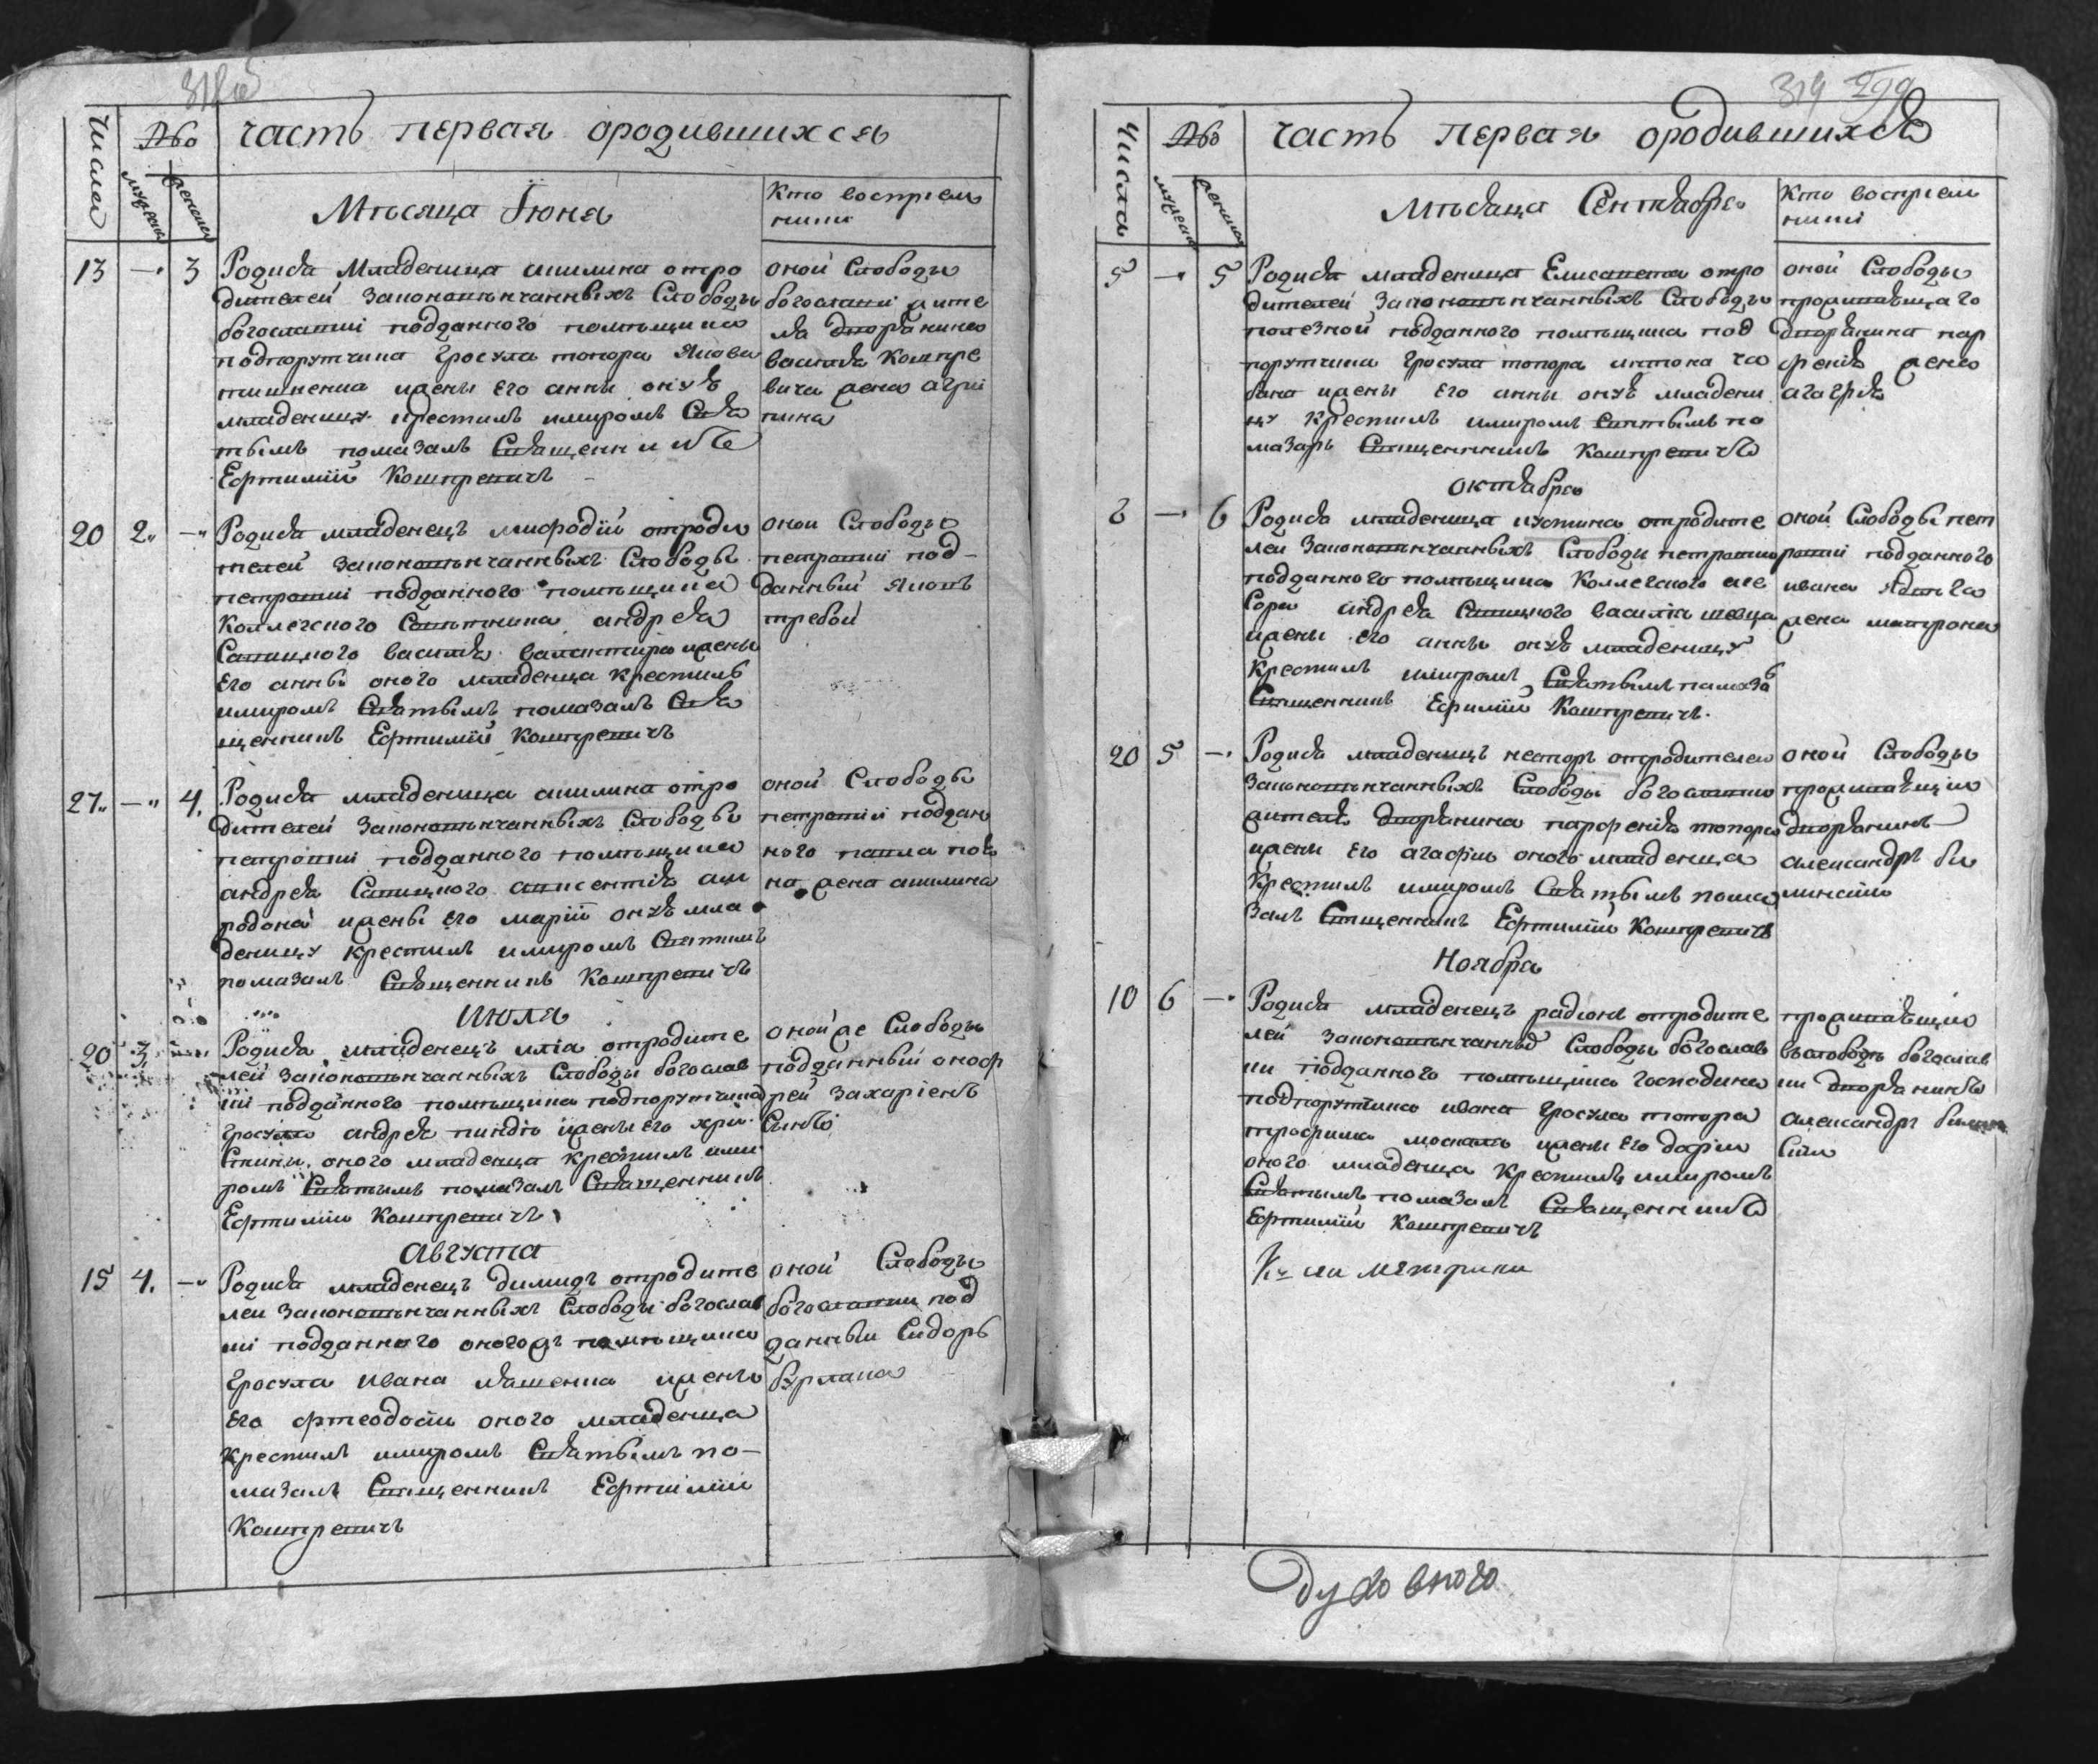 318об
Числа
№бо
мужеска
женска
часть первая ородившихся
Мѣсяца Їюня
Кто воспріем
ники
13 — 3 Родися Младеница акилина отро
дителей законовѣнчанныхъ Слободы
богославки подданного помѣщика
подпорутчика Гросула топора Якова
жены его анны онуѣ
младеницу крестилъ имиромъ Свя
тымъ помазалъ Священникъ
Ефтимій Кошпревичъ
оной Слободы
богославки жите
ля дворянина
василія Кошпре
вича жена агри
пина
20 2 — Родися младенецъ мифодій отроди
телей законовѣнчанныхъ Слободы
петровки подданного помѣщика
Коллегского Совѣтника андрея
Савицкого василия жены
Его анны оного младенца крестилъ
имиромъ Святымъ помазалъ Свя
щенникъ Ефтимій Кошпревичъ
оной Слободы
петровки под-
данный Яковъ
требой
27 — 4. Родися младеница акилина отро
дителей законовѣнчанныхъ Слободы
петровки подданного помѣщика
андрея Савицкого авксентія
жены его маріи онуѣ мла
деницу крестилъ имиромъ Святимъ
помазалъ Священникъ Кошпревичъ
оной Слободы
петровки поддан
ного павла
жена акилина
Июля
20 3 Родися младенецъ иліа отродите
лей законовѣнчанныхъ Слободы богослав
ки подданного помѣщика подпорутчика
Гросула андрея пиндю жены его хри
стины оного младенца крестилъ ими
ромъ Святымъ помазалъ Священникъ
Ефтимій Кошпревичъ
оной же Слободы
подданный оноф
рей Захаріевъ
Синъ
Августа
15 4. — Родися младенецъ димидъ отродите
лей законовѣнчанныхъ Слободы богослав
ки подданного оногожъ помѣщика
Гросула Ивана жены
Его фтеодосіи оного младенца
крестилъ имиромъ Святымъ по-
мазалъ Священникъ Ефтимій
Кошпревичъ
оной Слободы
богославки под
данный Сидоръ
бурлака
319 299
Числа
№бо
мужеска
женска
часть первая ородившихся
Мѣсяца Сентября
Кто воспріем
ники
5 — 5 Родися младеница Елисавета отро
дителей законовѣнчанныхъ Слободы
полезной подданного помѣщика под
порутчика Гросула топора антона ча
бана жены Его анны онуѣ младени
цу крестилъ имиромъ Святымъ по
мазаръ Священникъ Кошпревичъ
оной Слободы
проживающаго
дворянина пар
фенія жена
агафія
октября
6 Родися младеница иустина отродите
лей законовѣнчанныхъ Слободи петровки
подданного помѣщика Коллегского асе
сора андрея Савицкого василія шевца
жены его анны онуѣ младеницу
крестилъ имиромъ Святымъ помаза
Священникъ Ефимій Кошпревичъ.
оной Слободы пет
ровки подданного
ивана
жена матрона
20 5 — Родися младенецъ несторъ отродителей
законовѣнчанныхъ Слободы богославки
жителя дворянина парфенія топора
жены Его агафіи оного младенца
крестилъ имиромъ Святымъ пома
залъ Священникъ Ефтимій Кошпревичъ
оной Слободы
проживающій
дворянинъ
александръ
Ноября
10 6 — Родися младенецъ радіонъ отродите
лей законовѣнчанныхъ Слободы богослав
ки подданного помѣщика господина
подпорутчика ивана Гросула топора
трофима москаля жены его дарїи
оного младенца крестилъ имиромъ
Святымъ помазалъ Священникъ
Ефтимій Кошпревичъ
проживающій
въслободѣ богослав
ки дворянинъ
александръ
духовного